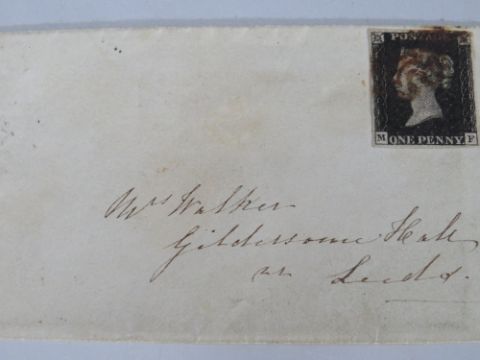 POSTAGE
M F
ONE PENNY
Mrs Walker
Gildersome Hall
nr Leeds.